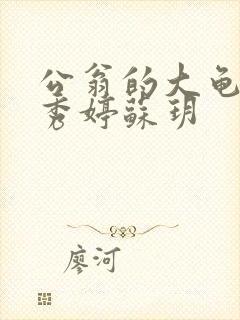 公翁的大龟
秀婷蘇玥
廖河